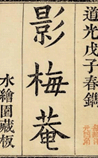 道光戊子春鐫
影梅菴
水繪園藏板